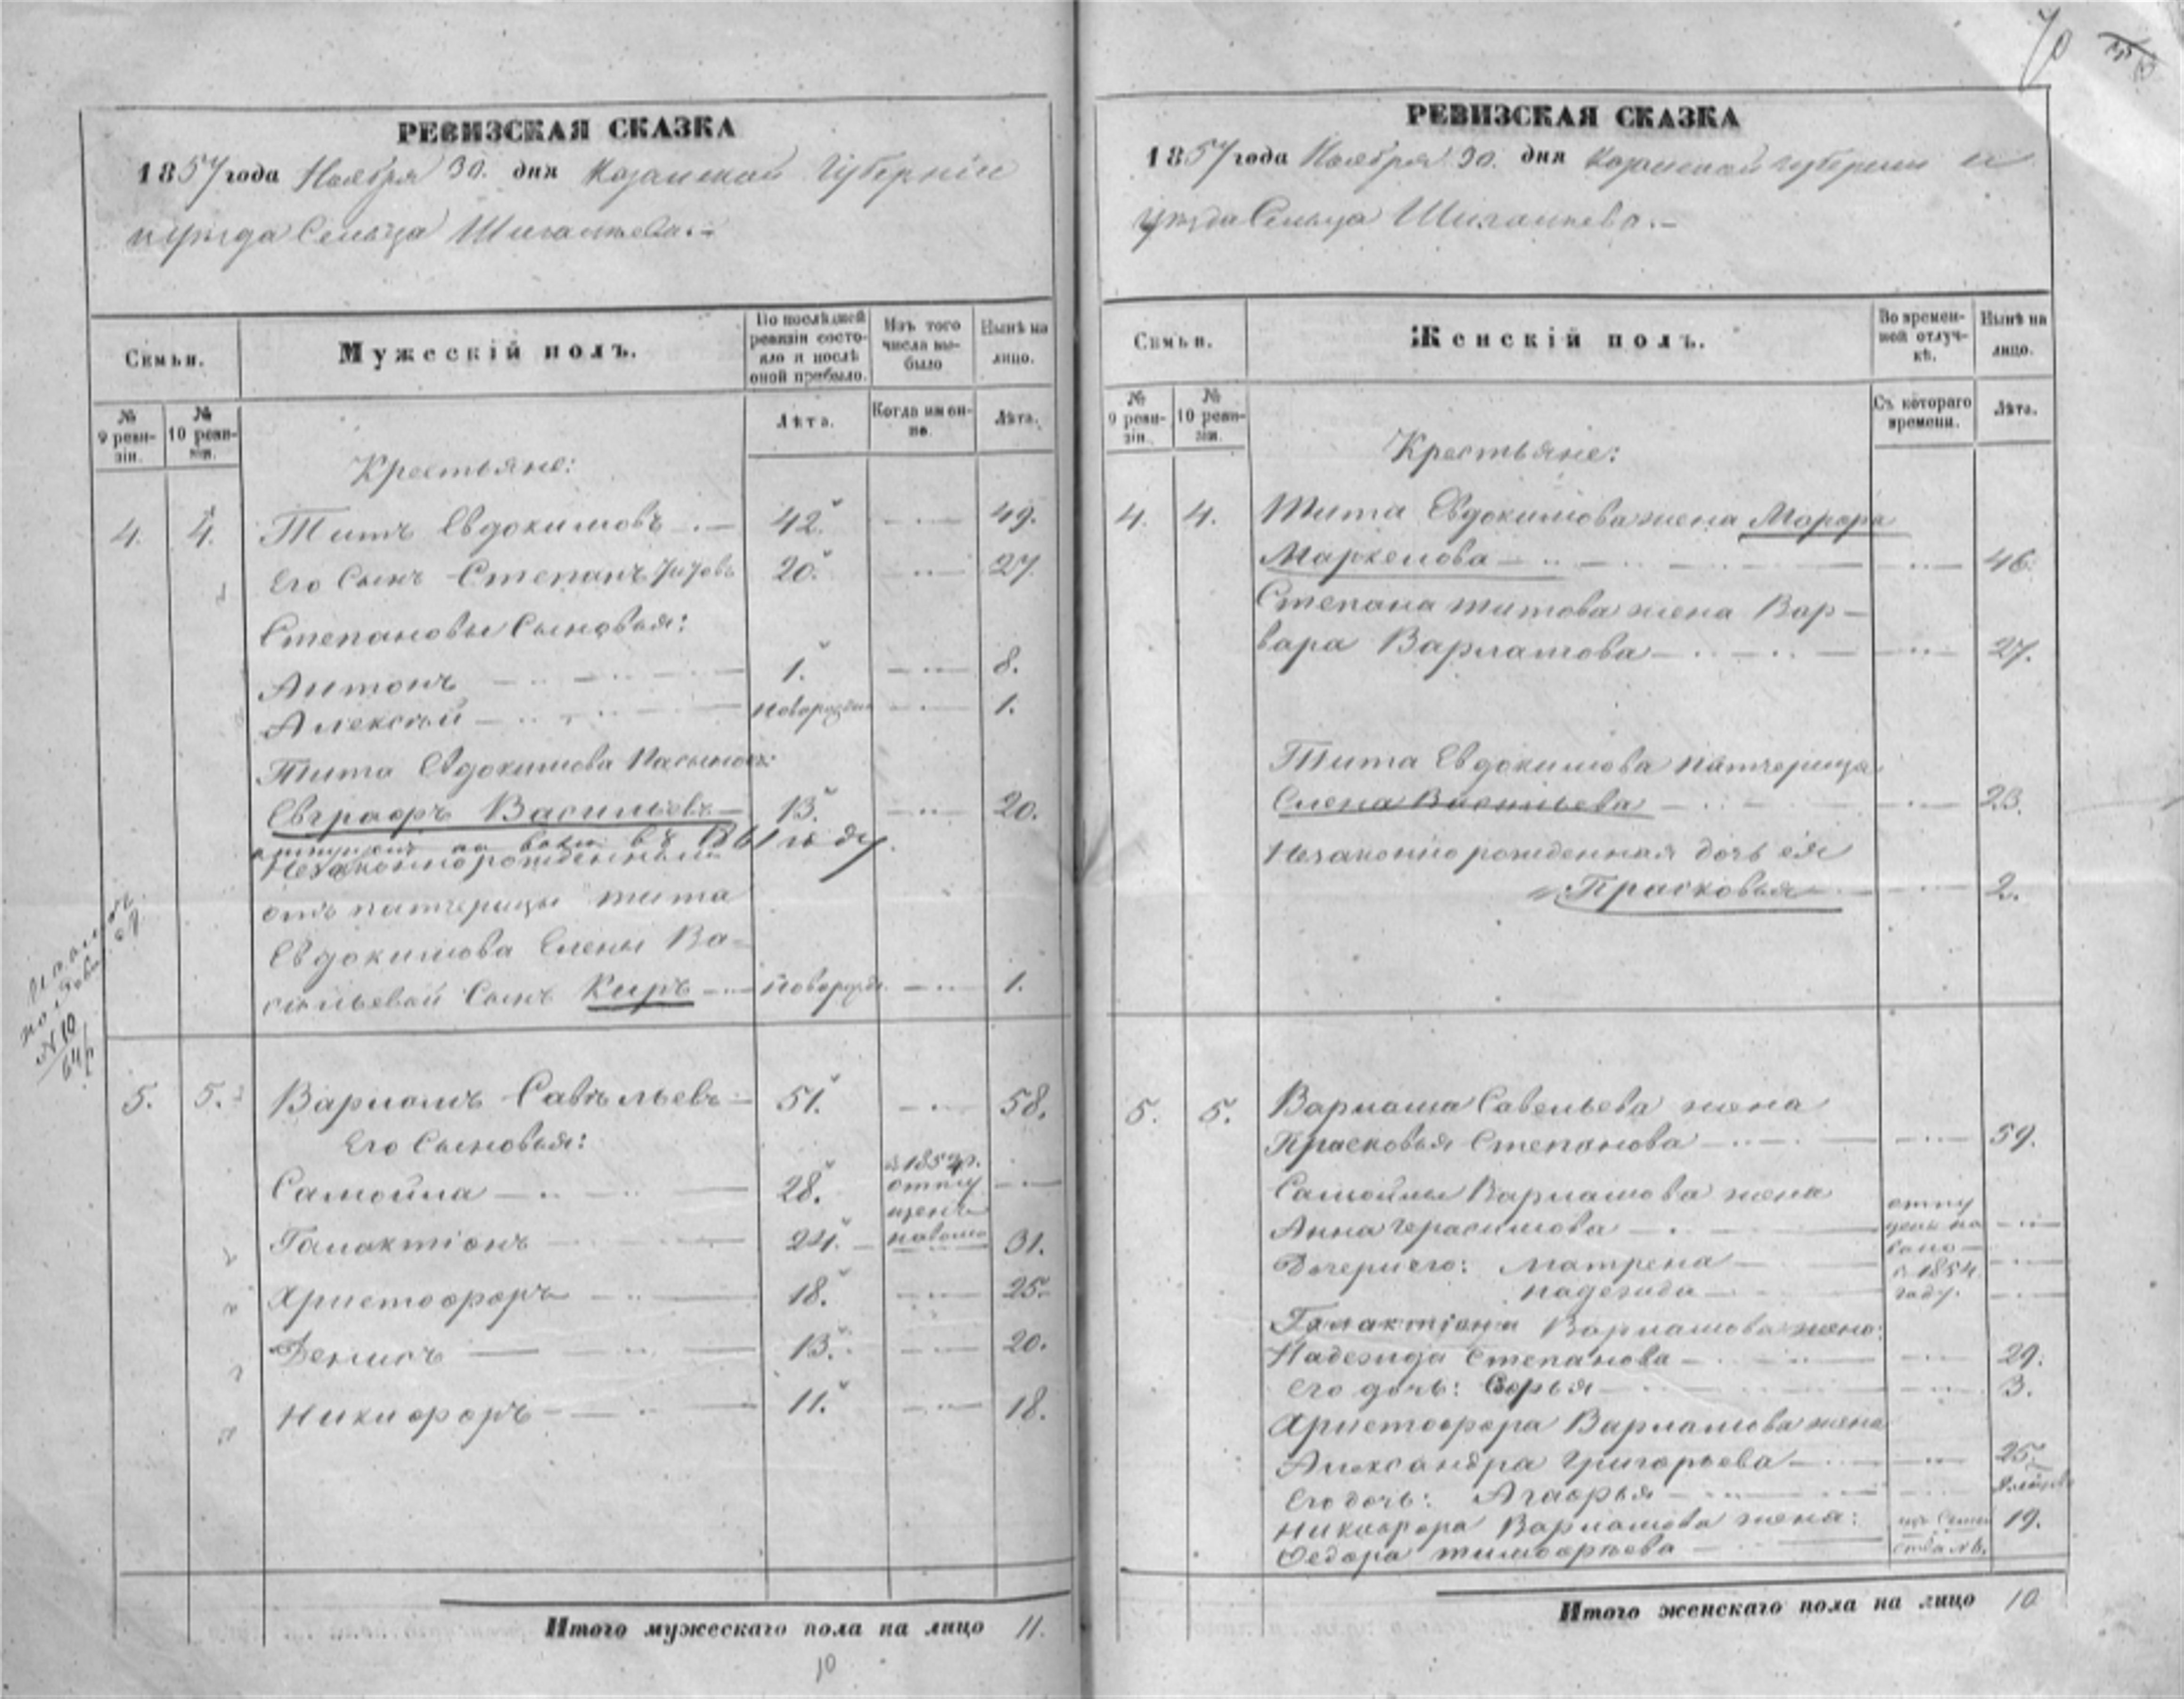 70
РЕВИЗСКАЯ СКАЗКА
1857 года Ноября 30. дня Казанской Губерніи
и уѣзда Сельца Шигалѣева.
Семьи.
Мужескій полъ.
По послѣдней ревизіи состояло и послѣ оной прибыло.
Изъ того числа выбыло
Нынѣ на лицо.
№ 9 ревизіи.
№ 10 ревизіи.
Лѣта.
Когда именно.
Лѣта.
Крестьяне:
4. 4. Титъ Евдокимовъ 42. 49.
Его Сынъ Степанъ Титовъ 20. 27.
Степановы Сыновья:
Антонъ 1. 8.
Алексѣй новорожден 1.
Тита Евдокимова Пасынокъ:
Евграфъ Васильевъ 13. 20.
отпущенъ на волю въ 1861 году.
Незаконнорожденный
отъ патчерицы тита
Евдокимова Елены Ва-
сильевой Сынъ Киръ новорожд. 1.
N 10
5. 5. Варламъ Савѣльевъ 51. 58.
Его Сыновья:
Самойла 28. отпущенъ на волю
Галактіонъ 24. 31.
Христофоръ 18. 25.
Денисъ 13. 20.
Никифоръ 11. 18.
Итого мужескаго пола на лицо 11.
10
РЕВИЗСКАЯ СКАЗКА
1857 года Ноября 30. дня Казанской губерніи и
уѣзда Сельца Шигалѣева.
Семьи.
Женскій полъ.
Во временной отлучкѣ.
Нынѣ на лицо.
№ 9 ревизіи.
№ 10 ревизіи.
Съ котораго времени.
Лѣта.
Крестьяне:
4. 4. Тита Евдокимова жена Марфа
Маркелова 46.
Степана титова жена Вар-
вара Варламова 27.
Тита Евдокимова патчерица
Елена Васильева 23.
Незаконно рожденная дочь ея
Прасковья 2.
5. 5. Варлама Савельева жена
Прасковья Степанова 59.
Самойлы Варламова жена
Анна Герасимова
Дочери его: Матрена
надежда
отпущены на волю в 1854 году.
Галактіона Варламова жена:
Надежда Степанова 29.
его дочь: Софья 3.
Христофора Варламова жена
Александра Григорьева 25.
Его дочь: Агафья
Никифора Варламова жена:
Федора тимофѣева 19.
Итого женскаго пола на лицо 10